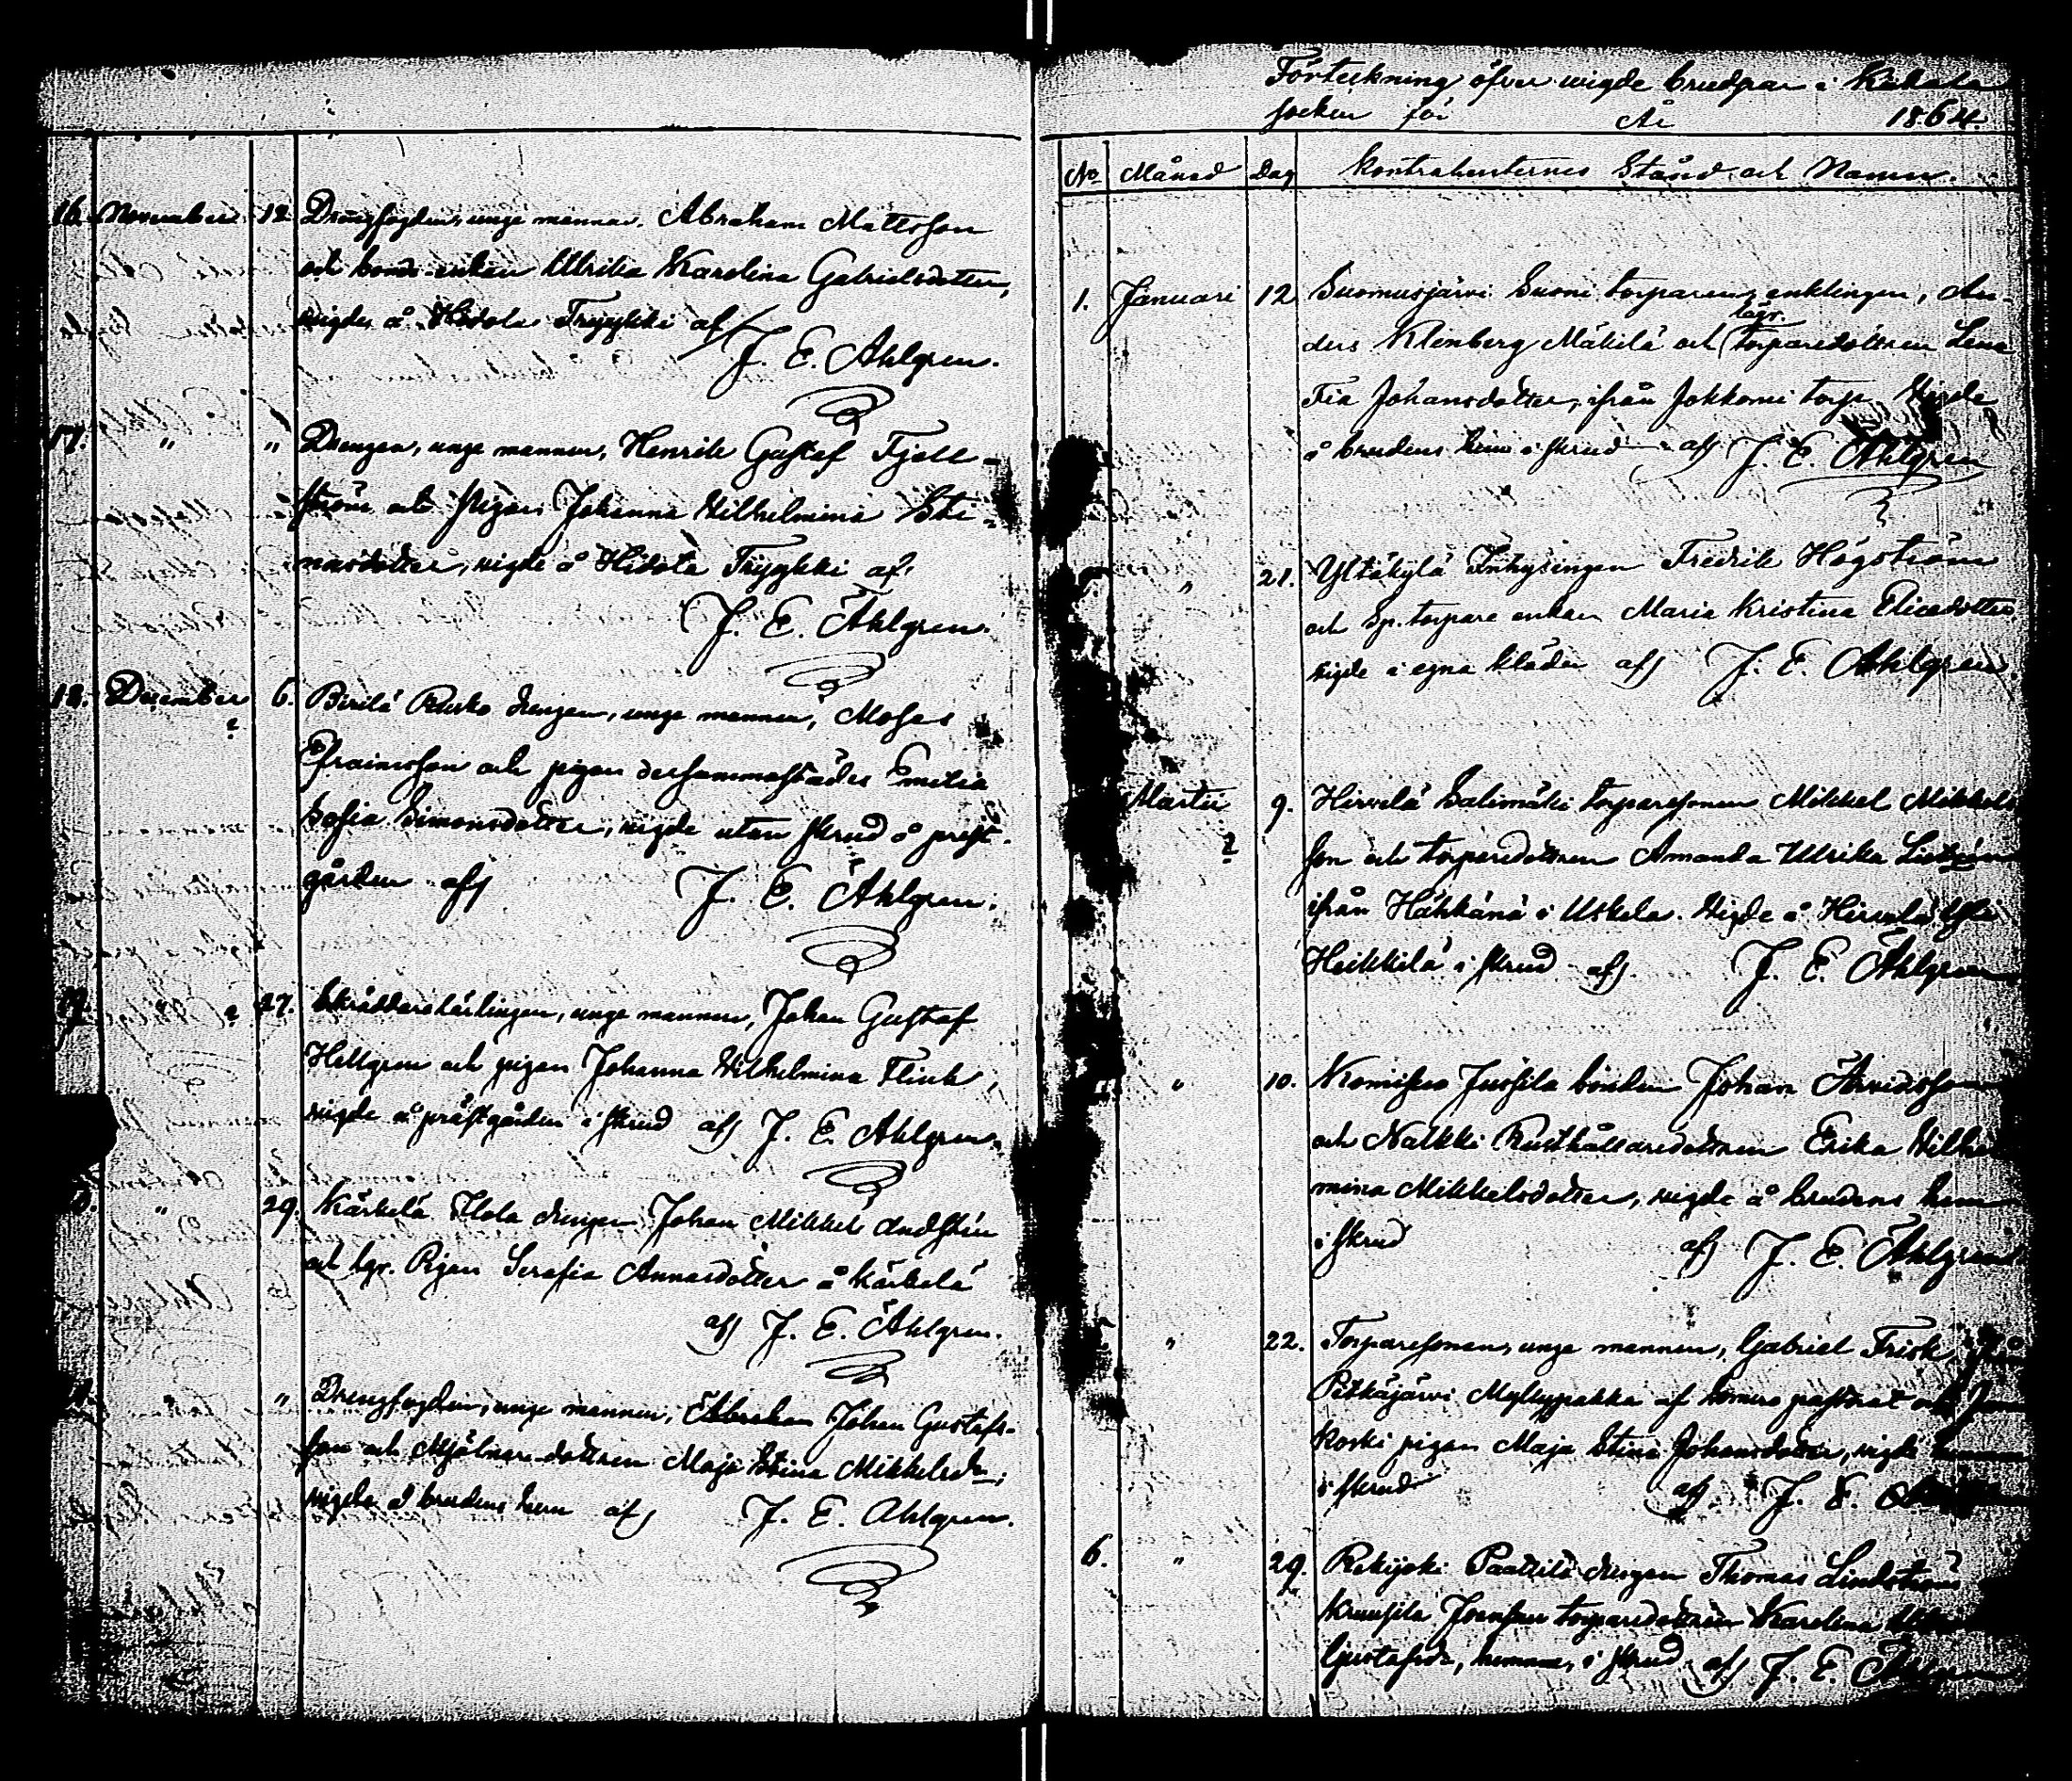 16. November 12. Drengfogden, unge mannen, Abraham Mattsson
och bonde-enkan Ulrika Karolina Gabrielsdotter,
vigde å Hidola Tryykki af
J. E. Ahlgren.
17. " " Drengen, unge mannen, Henrik Gustaf Fjell-
ström och pigan Johanna Wilhelmina Sti-
nasdotter, vigde å Hidola Tryykki af
J. E. Ahlgren.
18. December 6. Pirilä Rusko drengen, unge mannen, Moses
Efraimsson och pigan dersammastädes Emilia
Sofia Simonsdotter, vigde utan skrud å prest-
gården af J. E. Ahlgren.
" 27. Skräddarelärlingen, unge mannen, Johan Gustaf
Hellgren och pigan Johanna Wilhelmina Flink,
vigde å prästgården i skrud af J. E. Ahlgren.
" 29. Kärkelä Ilola drengen Johan Mikkel
och lgr. Pigan Serafia Annasdotter å Kärkelä
af J. E. Ahlgren.
" Drengfogden, unge mannen, Abraham Johan Gustafs-
son och Mjölnare dottren Maja Stina Mikkelsdr,
vigda å brudens hem af J. E. Ahlgren.
Förteckning öfver wigde brudpar i Kiikala
socken för År 1864.
No Månad Dag Kontrahenternes Stånd och Namn.
1. Januari 12 Suomusjärvi Suoni torparen, enklingen, An-
lägr.
ders Klenberg Mäkilä och torparedottren Lena
Fia Johansdotter, ifrån Jokkoni torp. Wigde
å brudens hem i skrud af J. E. Ahlgren
" 21. Yltäkylä Inhysingen Fredrik Högström
och Sp. torpare enkan Maria Kristina Elicedotter,
vigde i egna kläder af J. E. Ahlgren.
Martii 9. Hirvelä Salimäki torparesonen Mikkel Mikkels
son och torparedottren Amanda Ulrika
ifrån Hähkänä i Uskela. Wigde å Hirvelä
Heikkilä i skrud af J. E. Ahlgren
" 10. Komisuo Jussila bonden Johan Arvidsson
och Nalkki Rusthållaredottren Erika Wilhel
mina Mikkelsdotter, vigde å brudens hem
i skrud af J. E. Ahlgren
" 22. Torparesonen, unge mannen, Gabriel Frisk ifrån
Pitkäjärvi Myllypakka af Somero pastorat och
koski pigan Maja Stina Johansdotter, vigde hemma
i skrud af J. E.
6. " 29. Rekijoki Paattila drengen Thomas Lindström
Kruusila torparedottren Karolina
Gustafsdr, hemma, i skrud af J. E. Ahlgren